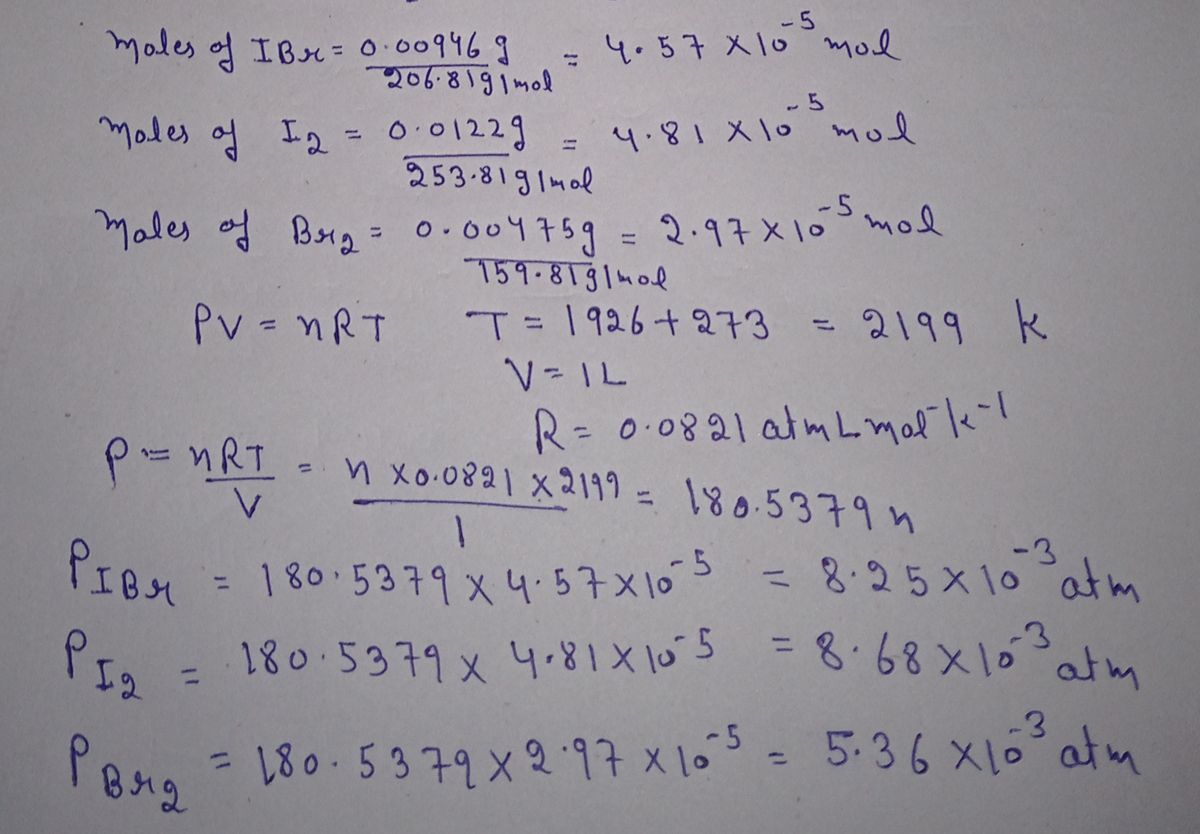 Moles of IBr = 0.00946 g / 206.81 g/mol = 4.57 × 10⁻⁵ mol
Moles of I₂ = 0.0122 g / 253.81 g/mol = 4.81 × 10⁻⁵ mol
Moles of Br₂ = 0.004475 g / 159.81 g/mol = 2.97 × 10⁻⁵ mol
PV = nRT T = 1926 + 273 = 2199 k
V = 1L
R = 0.0821 atm L mol⁻ k⁻¹
P = nRT / V = n × 0.0821 × 2199 / 1 = 180.5379 n
P_IBr = 180.5379 × 4.57 × 10⁻⁵ = 8.25 × 10⁻³ atm
P_I₂ = 180.5379 × 4.81 × 10⁻⁵ = 8.68 × 10⁻³ atm
P_Br₂ = 180.5379 × 2.97 × 10⁻⁵ = 5.36 × 10⁻³ atm